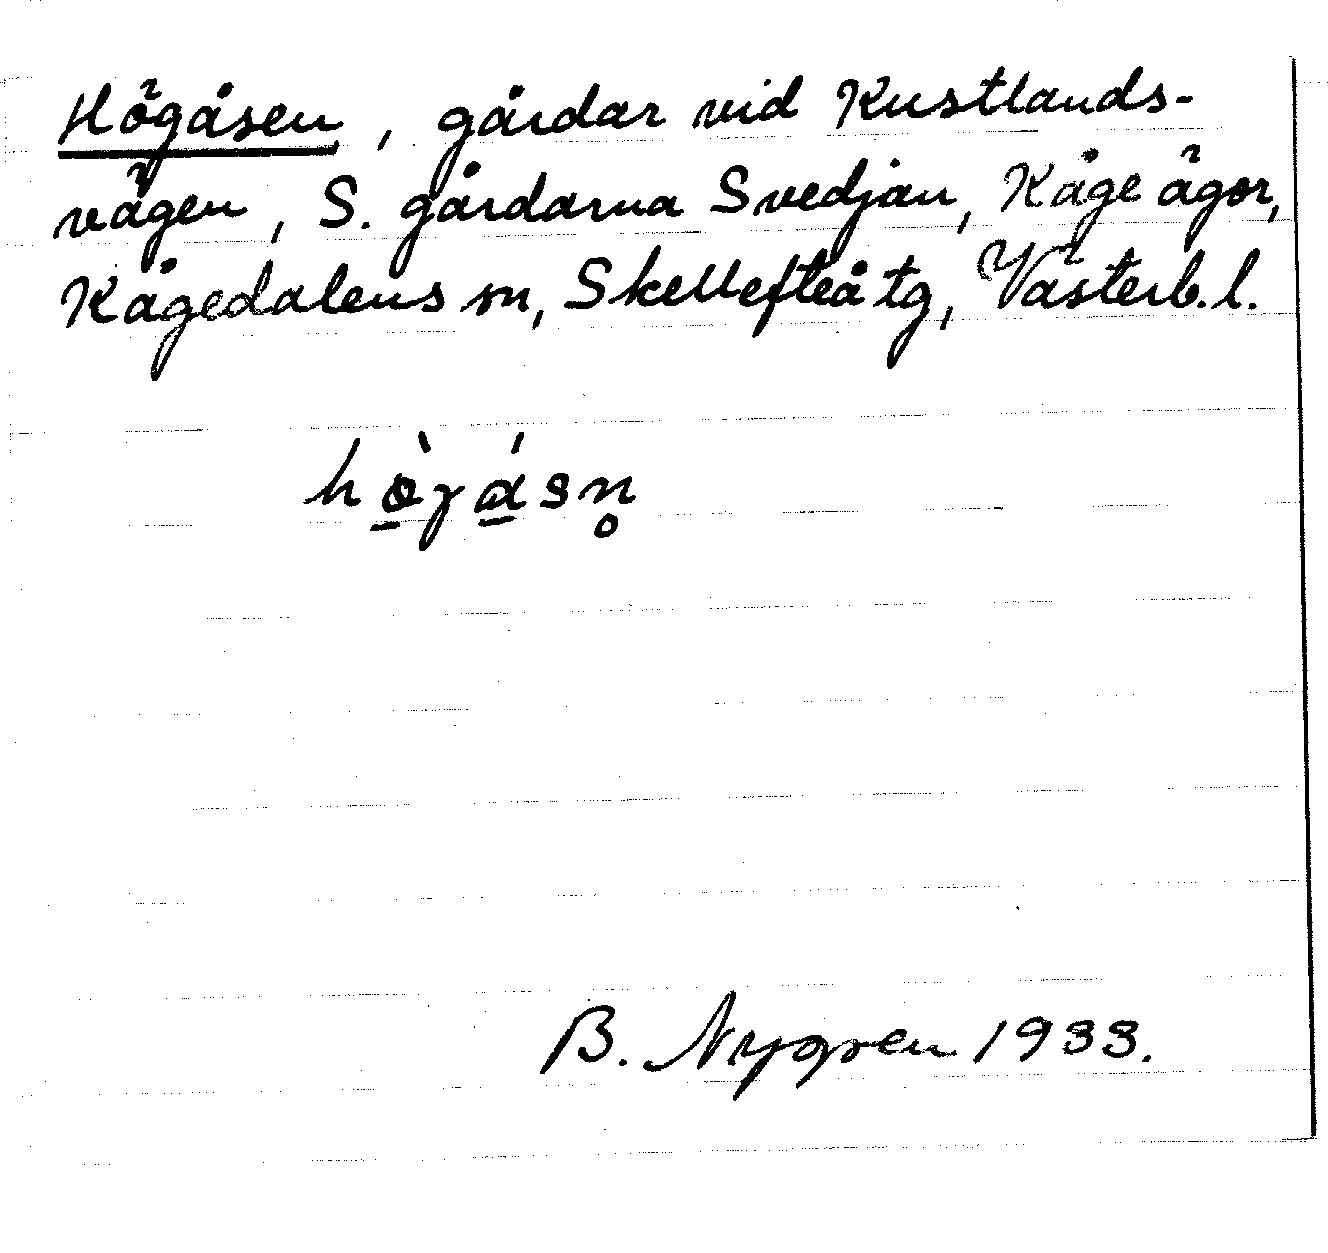 Högåsen, gårdar vid Kustlands-
vägen, S. gårdarna Svedjan, Kåge ägor,
Kågedalens sn, Skellefteå tg, Västerb. l.
hö̲̀gǻ̲sn̥
B. Nygren 1933.